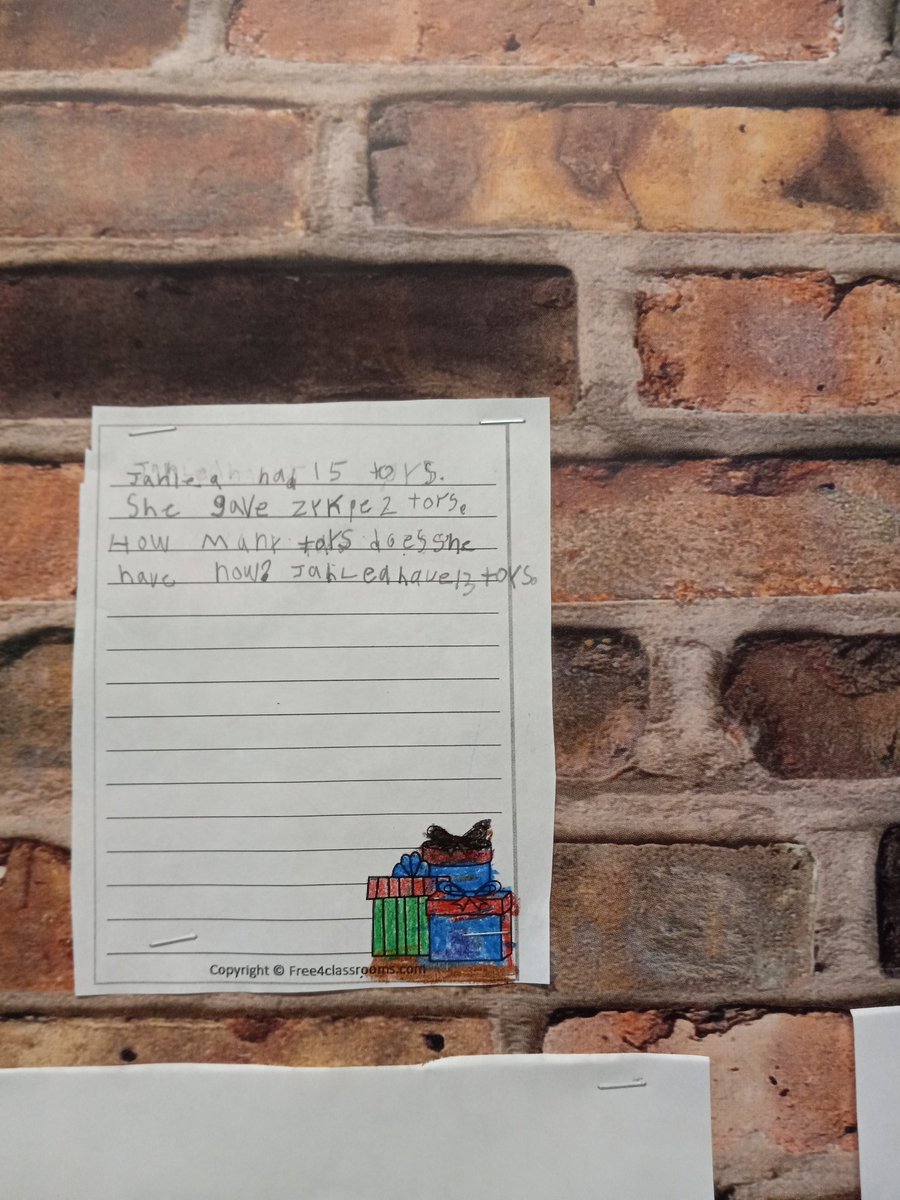 Jahlea had 15 toys.
She gave zykpe 2 toys.
How many toys does she
have now? Jahlea have 13 toys.
Copyright © Free4classrooms.com